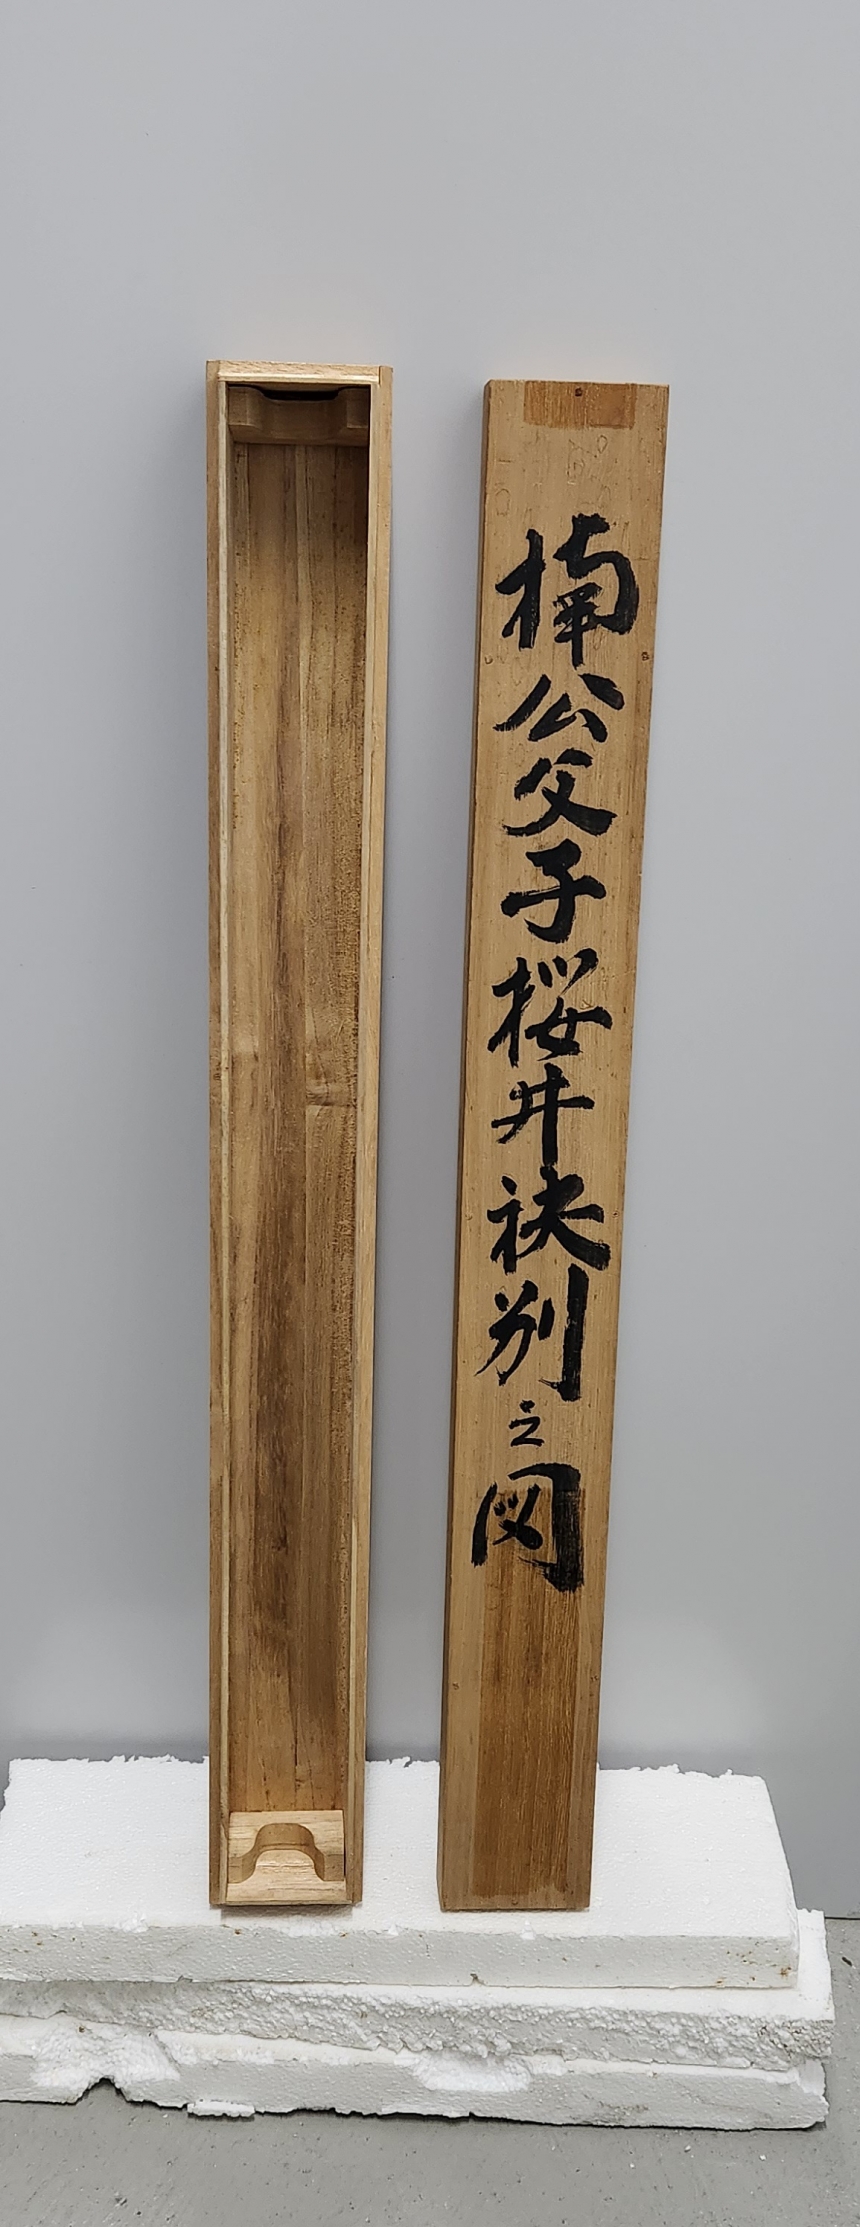 楠公父子桜井袂別之図